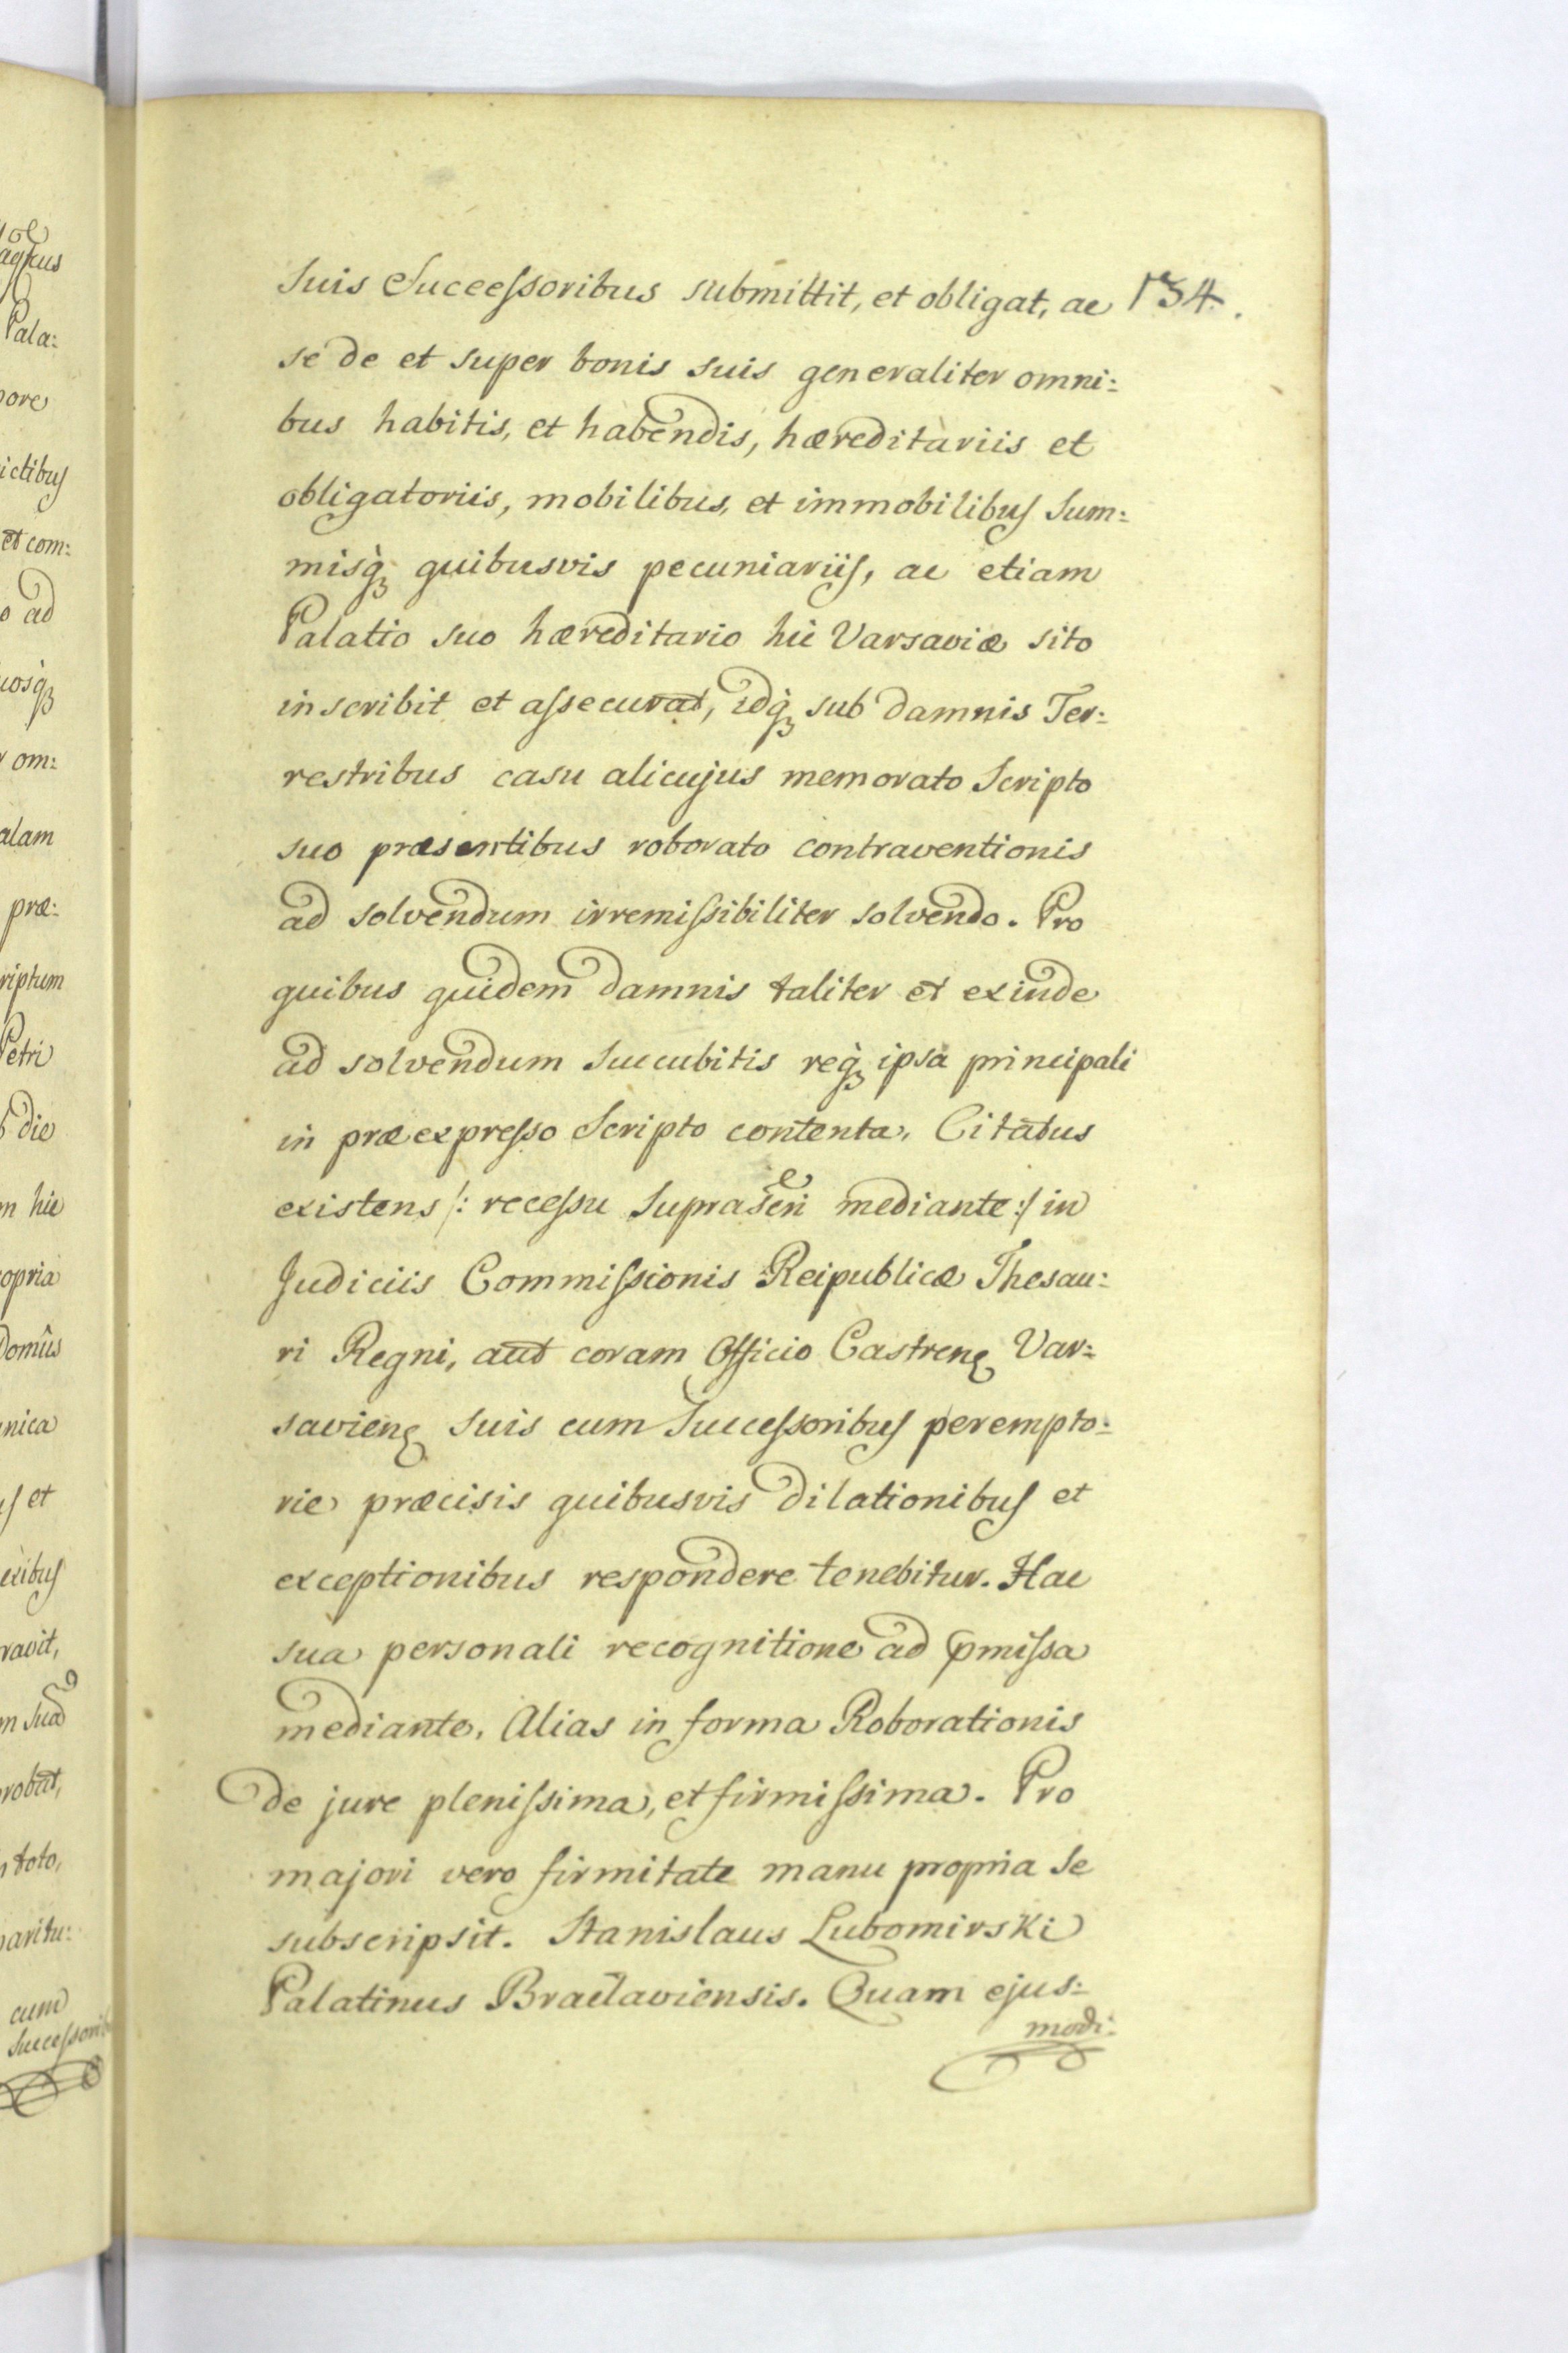 suis Successoribus submittit, et obligat, ac 134.
se de et super bonis suis generaliter omni:
bus habitis, et habendis, hæreditariis et
obligatoriis, mobilibus, et immobilibus Sum:
misq̀ꝫ quibusvis pecuniariis, ac etiam
Palatio suo hæreditario hic Varsaviæ sito
inscribit et assecurat, idq̀ꝫ sub damnis Ter:
restribus casu alicujus memorato Scripto
suo præsentibus roborato contraventionis
ad solvendum irremissibiliter solvendo. Pro
quibus quidem damnis taliter et exinde
ad solvendum succubitis req̀ꝫ ipsa principali
in præexpresso Scripto contenta, Citatus
existens /: recessu Suprascri mediante :/ in
Judiciis Commissionis Reipublicæ Thesau:
ri Regni, aut coram Officio Castrenꝫ Var:
savienꝫ suis cum Successoribus perempto:
rie præcisis quibusvis dilationibus et
exceptionibus respondere tenebitur. Hac
sua personali recognitione ad pmissa
mediante. Alias in forma Roborationis
de jure plenissima, et firmissima. Pro
majori vero firmitate manu propria se
subscripsit. Stanislaus Lubomirski
Palatinus Braclaviensis. Quam ejus:
modi:
Pala:
et com:
ad
om:
præ:
Petri
die
hic
et
toto,
cum